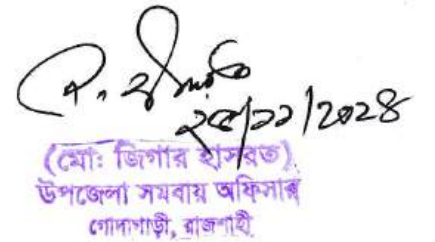 ২৫/১১/২০২৪
(মো: জিগার হাসরত)
উপজেলা সমবায় অফিসার
গোদাগাড়ী, রাজশাহী